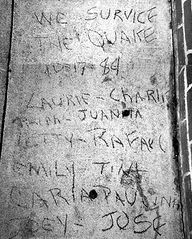 WE SURVICE
THE QUAKE
10-17-89
LAURIE - CHARLI
JUANITA
RAFAEL
EMILY TIM
MARIA PAULINA
JOEY - JOSE